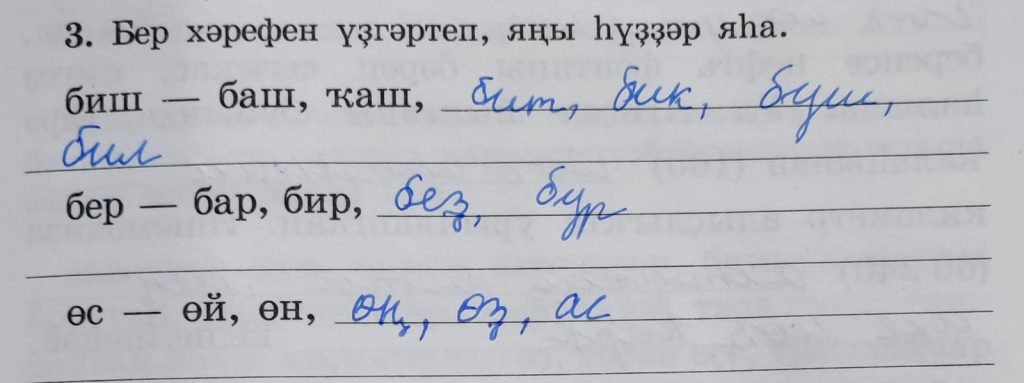 3. Бер хәрефен үҙгәртеп, яңы һүҙҙәр яһа.
биш — баш, ҡаш, бит, бик, буш,
бил
бер — бар, бир, беҙ, бур
өс — өй, өн, өң, өҙ, ас